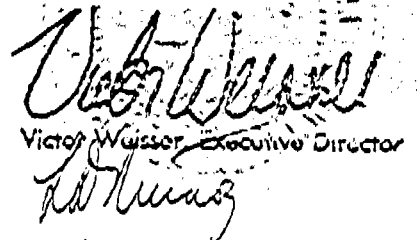 Victor Weisser
Victor Weisser, Executive Director